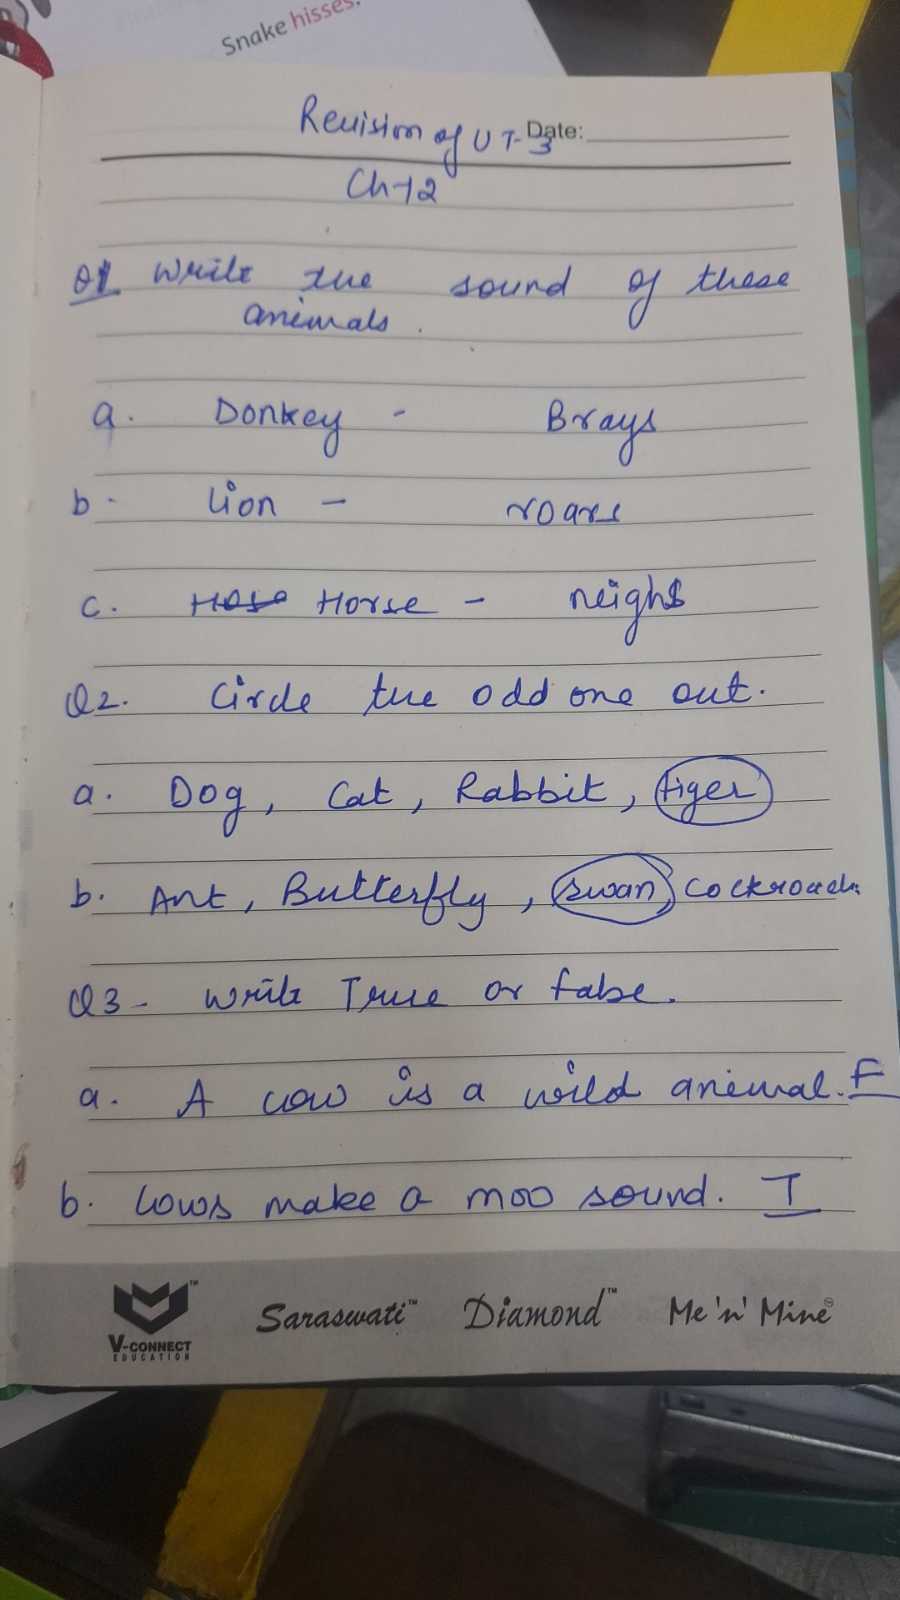 Snake hisses.
Revision of UT-3 Date:
Ch-12
Q1 Write the sound of these
animals.
a. Donkey - Brays
b. Lion - roars
c. Horse - neighs
Q2. Circle the odd one out.
a. Dog, Cat, Rabbit, tiger
b. Ant, Butterfly, swan, Cockroach.
Q3 - Write True or false.
a. A cow is a wild animal. F
b. Cows make a moo sound. T
V-CONNECT
EDUCATION
Saraswati™ Diamond™ Me 'n' Mine®